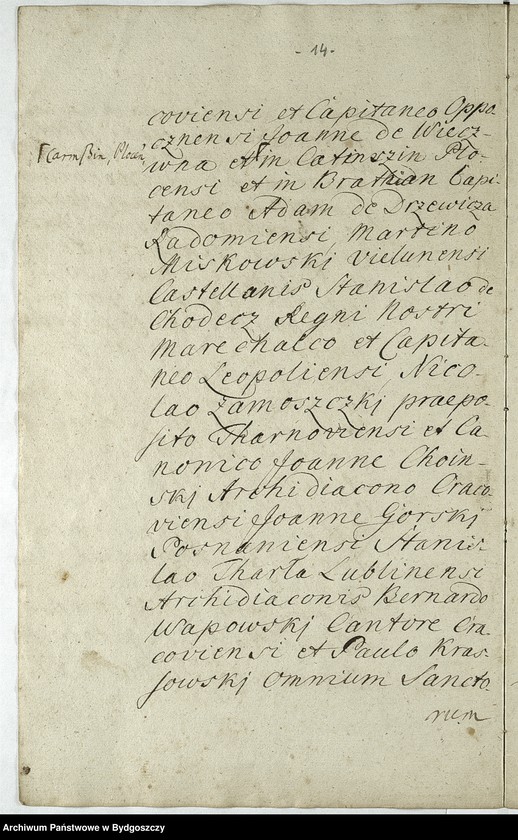 - 14 -
coviensi et Capitaneo Oppo-
cznensi Joanne de Wiecz-
wna et in Catinszin Plo-
censi et in Brathian Capi-
taneo Adam de Drzewicza
Radomiensi, Martino
Miskowskj Vielunensi
Castellanis Stanislao de
Chodecz Regni Nostri
Marechalco et Capita-
neo Leopoliensi, Nico-
lao Zamoszczkj praepo-
sito Tharnoviensi et Ca-
nonico Joanne Choin-
skj Archidiacono Craco-
viensi Joanne Gorskj
Posnaniensi Stanis-
lao Tharła Lublinensi
Archidiaconis Bernardo
Wapowskj Cantore Cra-
coviensi et Paulo Kras-
sowskj Omnium Sancto-
rum
Archiwum Państwowe w Bydgoszczy